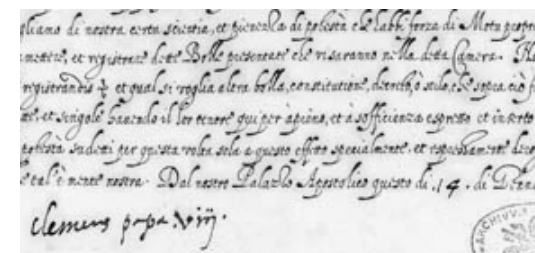 gliamo di nostra certa scientia, et pienezza di potestà che habbi forza di Motu propr
mettere, et registrare dette Bolle presentate che vi saranno nella detta Camera.
registrandis et qual si voglia altra bolla, constitutione, decreto, ò stilo, che sopra ciò
et singole havendo il lor tenore qui per àpieno, et à sofficienza espresso et inserto
potestà sudetti per questa volta sola a questo effetto specialmente, et espressamente dero
tal'è mente nostra. Dal nostro Palazzo Apostolico questo dì .14. di
clemens papa viij.
ARCHIVV